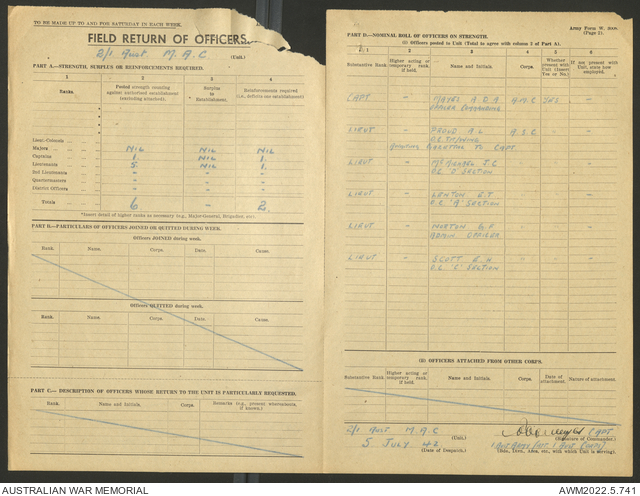 TO BE MADE UP TO AND FOR SATURDAY IN EACH WEEK.
FIELD RETURN OF OFFICERS.
2/1 Aust M.A.C (Unit.)
PART A.—STRENGTH, SURPLUS OR REINFORCEMENTS REQUIRED.
1 2 3 4
Ranks. Posted strength counting against authorised establishment (excluding attached). Surplus to Establishment. Reinforcements required (i.e., deficits on establishment)
Lieut.-Colonels
Majors NIL NIL NIL
Captains 1 NIL 1
Lieutenants 5 NIL 1
2nd Lieutenants - - -
Quartermasters - - -
District Officers - - -
Totals 6 - 2
*Insert detail of higher ranks as necessary (e.g., Major-General, Brigadier, etc).
PART B.—PARTICULARS OF OFFICERS JOINED OR QUITTED DURING WEEK.
Officers JOINED during week.
Rank. Name. Corps. Date. Cause.
Officers QUITTED during week.
Rank. Name. Corps. Date. Cause.
PART C.—DESCRIPTION OF OFFICERS WHOSE RETURN TO THE UNIT IS PARTICULARLY REQUESTED.
Rank. Name and Initials. Corps. Remarks (e.g., present whereabouts, if known.)
Army Form W.
(Page 2).
PART D.—NOMINAL ROLL OF OFFICERS ON STRENGTH.
(i) Officers posted to Unit (Total to agree with column 2 of Part A).
1 2 3 4 5 6
Substantive Rank. Higher acting or temporary rank, if held. Name and Initials. Corps. Whether present with Unit (Insert Yes or No.). If not present with Unit, state how employed.
CAPT - MAYES A D A A.M.C YES -
LIEUT - PROUD A L A.S.C -
LIEUT -
LIEUT - LAWTON E.T -
O.C. "A" SECTION
LIEUT - NORTON G F -
ADMIN OFFICER
LIEUT - SCOTT E H
O.C "C" SECTION
(ii) OFFICERS ATTACHED FROM OTHER CORPS.
Substantive Rank. Higher acting or temporary rank, if held. Name and Initials. Corps. Date of attachment. Nature of attachment.
2/1 Aust M.A.C (Unit.) CAPT (Signature of Commander.)
5 JULY 42 (Date of Despatch.) (Bde., Divn., Area, etc., with which Unit is serving).
AUSTRALIAN WAR MEMORIAL AWM2022.5.741